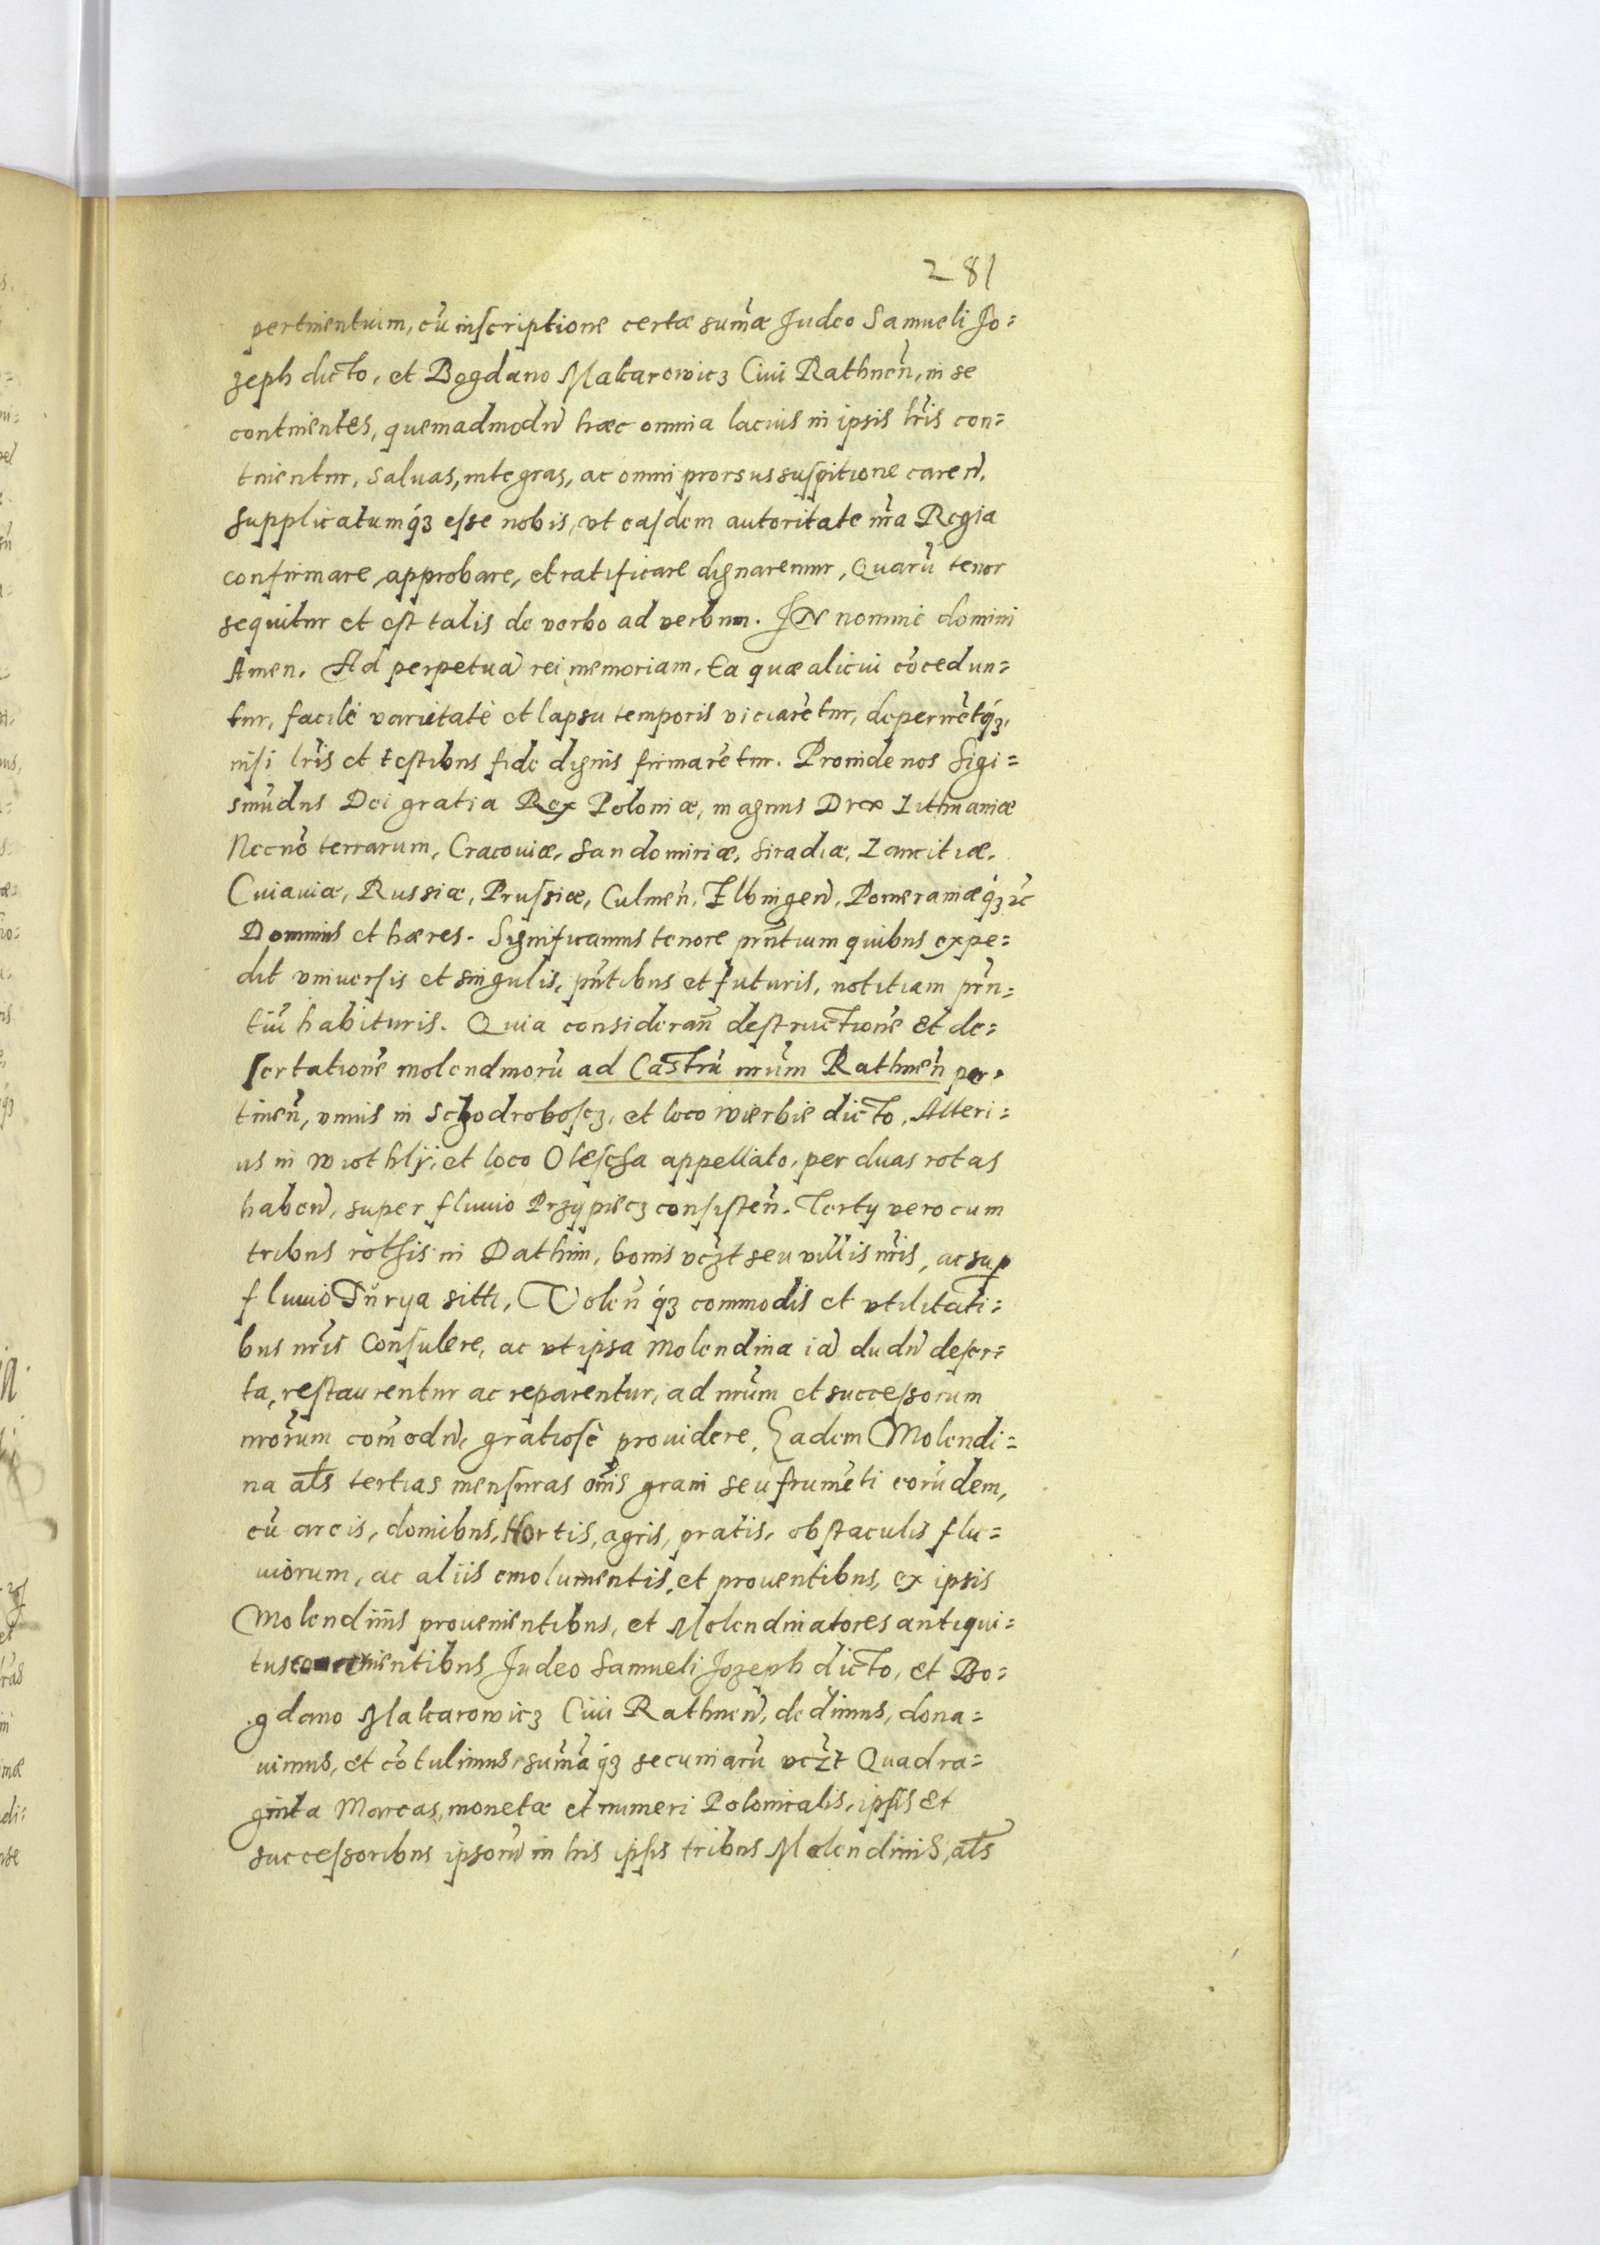 281
pertinentium, cũ inscriptione certæ sum̃æ Judeo Samueli Jo=
zeph dicto, et Bogdano Makarowicz Ciui Rathneñ, in se
continentes, quemadmodũ hæc omnia lacius in ipsis lr̃is con=
tinentur, Saluas, integras, ac omni prorsus suspitione careñ.
Supplicatumq́ʒ esse nobis, vt easdem autoritate nr̃a Regia
confirmare, approbare, et ratificare dignaremur, Quarũ tenor
sequitur et est talis de verbo ad verbum. IN nomine domini
Amen. Ad perpetuã rei memoriam. Ea quæ alicui cõcedun=
tur, facile varietate et lapsu temporis viciarẽtur, deperirẽtq́ʒ,
nisi lr̃is et testibus fide dignis firmarẽtur. Proinde nos Sigi=
smũdus Dei gratia Rex Poloniæ, magnus Dux Lithuaniæ
Necnõ terrarum, Cracouiæ, Sandomiriæ, Siradiæ, Lancitiæ,
Cuiauiæ, Russiæ, Prussiæ, Culmeñ, Elbingeñ, Pomeraniæq́ʒ ꝛc
Dominus et hæres. Significamus tenore pr̃ntium quibus expe=
dit vniuersis et singulis, pñtibus et futuris, notitiam pr̃n=
tiũ habituris. Quia considerañ destructionẽ et de=
sertationẽ molendinorũ ad Castrũ nr̃um Rathneñ per=
tineñ, vnius in Schodrobosch, et loco wierbie dicto, Alteri=
us in wiothly, et loco Olescha appellato, per duas rotas
habeñ, super fluuio Przypiecz consisteñ. Tertij vero cum
tribus rothis in Dathim, bonis vcʒt seu villis nr̃is, ac sup
fluuio Turya siti, Voleñ q́ʒ commodis et vtilitati=
bus nr̃is Consulere, ac vt ipsa molendina iã dudũ deser=
ta, restaurentur ac reparentur, ad nr̃um et successorum
nr̃orum com̃odũ, gratiose prouidere, Eadem Molendi=
na al̃s tertias mensuras om̃is grani seu frumẽti eorũdem,
cũ areis, domibus, Hortis, agris, pratis, obstaculis flu=
uiorum, ac aliis emolumentis, et prouentibus, ex ipsis
Molendinis prouenientibus, et Molendinatores antiqui=
tus concernentibus Judeo Samueli Jozeph dicto, et Bo=
gdano Makarowicz Ciui Rathneñ, dedimus, dona=
uimus, et cõtulimus, sum̃ãq́ʒ pecuniarũ vcʒt Quadra=
ginta Marcas, monetæ et numeri Polonicalis, ipsis et
successoribus ipsorũ in his ipsis tribus Molendinis, al̃s